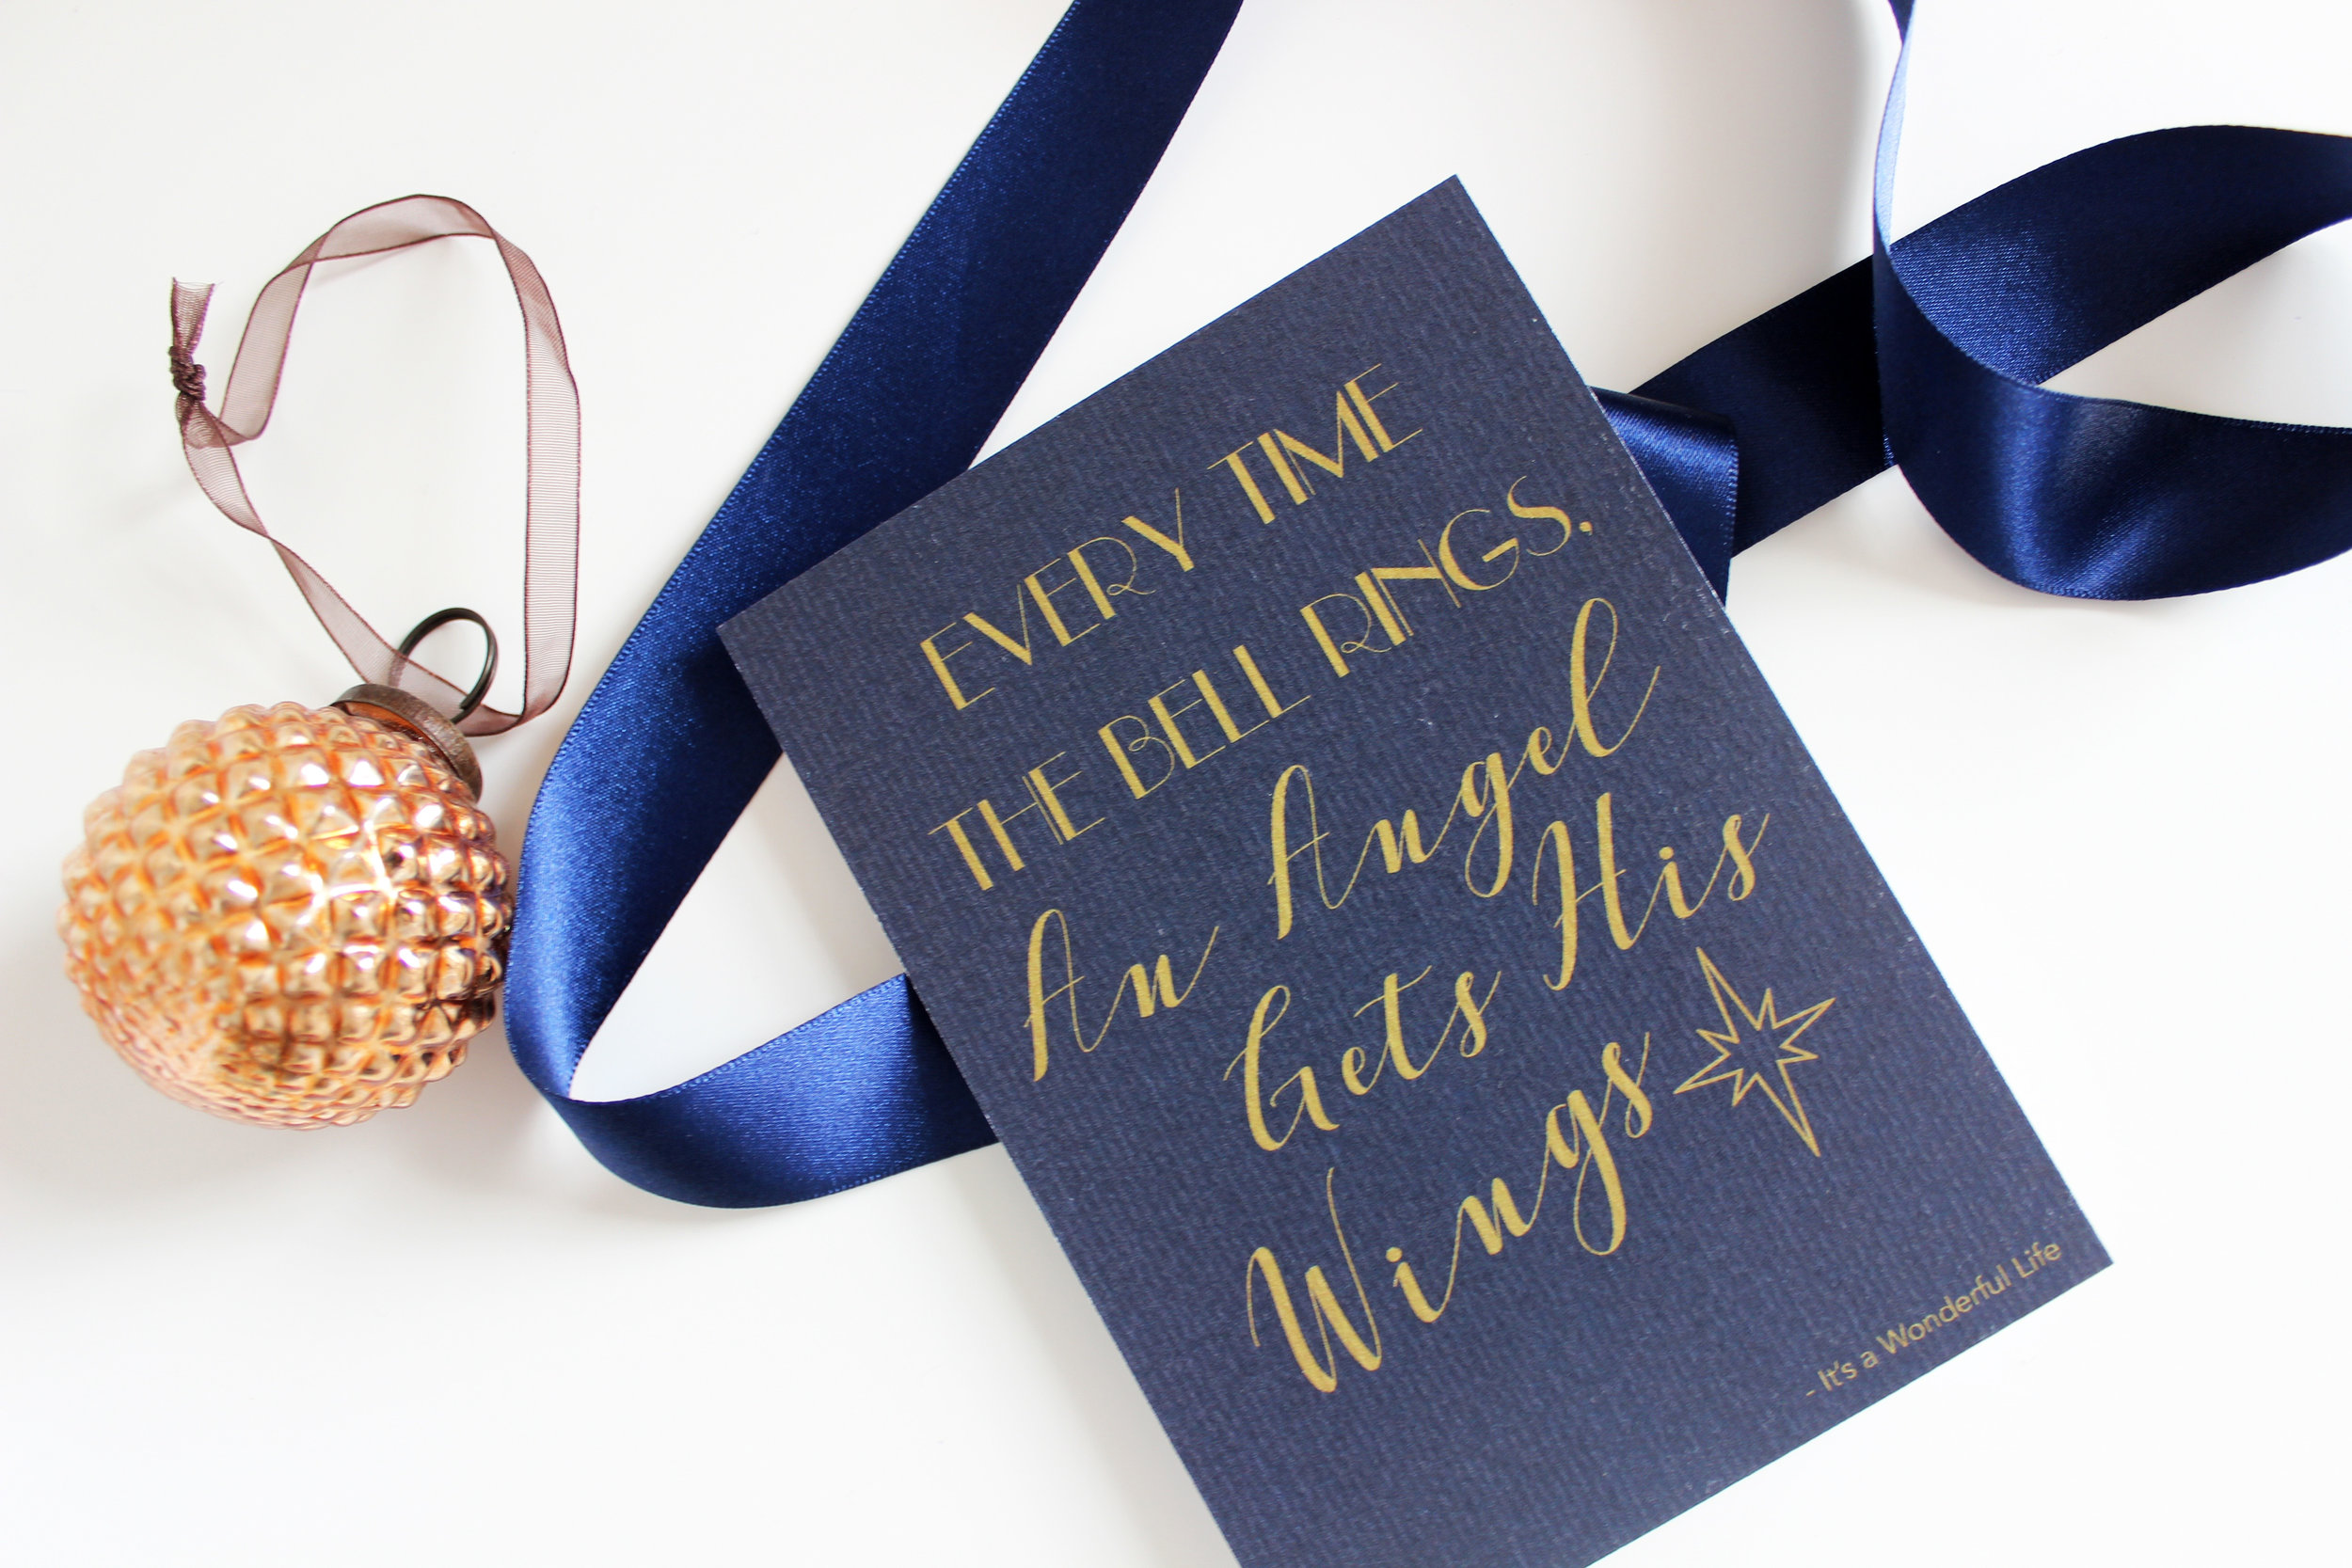 EVERY TIME
THE BELL RINGS.
An Angel
Gets His
Wings
- It's a Wonderful Life